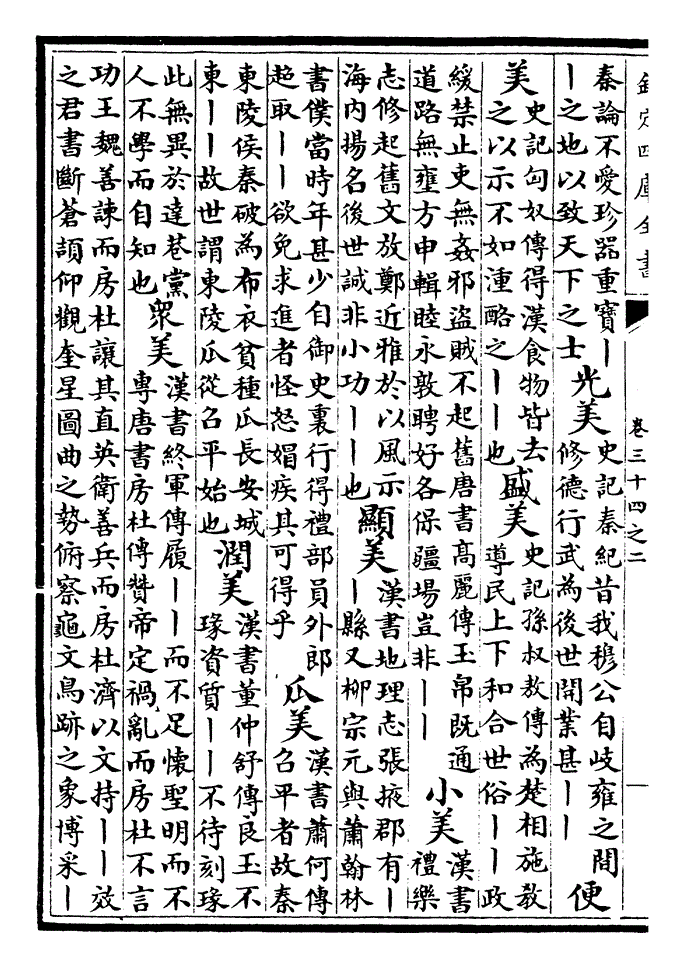 欽定四庫全書
卷三十四之二
秦論不愛珍器重寶｜
｜之地以致天下之士
光美
史記秦紀昔我穆公自岐雍之間
修德行武為後世開業甚｜｜
便
美
史記匈奴傳得漢食物皆去
之以示不如湩酪之｜｜也
盛美
史記孫叔敖傳為楚相施教
導民上下和合世俗｜｜政
緩禁止吏無姦邪盜賊不起舊唐書高麗傳玉帛既通
道路無壅方申輯睦永敦聘好各保疆場豈非｜｜
小美
漢書
禮樂
志修起舊文放鄭近雅於以風示
海内揚名後世誠非小功｜｜也
顯美
漢書地理志張掖郡有｜
｜縣又柳宗元與蕭翰林
書僕當時年甚少自御史裏行得禮部員外郎
超取｜｜欲免求進者怪怒媢疾其可得乎
瓜美
漢書蕭何傳
召平者故秦
東陵侯秦破為布衣貧種瓜長安城
東｜｜故世謂東陵瓜從召平始也
潤美
漢書董仲舒傳良玉不
瑑資質｜｜不待刻瑑
此無異於達巷黨
人不學而自知也
衆美
漢書終軍傳履｜｜而不足懷聖明而不
專唐書房杜傳贊帝定禍亂而房杜不言
功王魏善諫而房杜讓其直英衛善兵而房杜濟以文持｜｜效
之君書斷蒼頡仰觀奎星圜曲之勢俯察龜文鳥跡之象博采｜